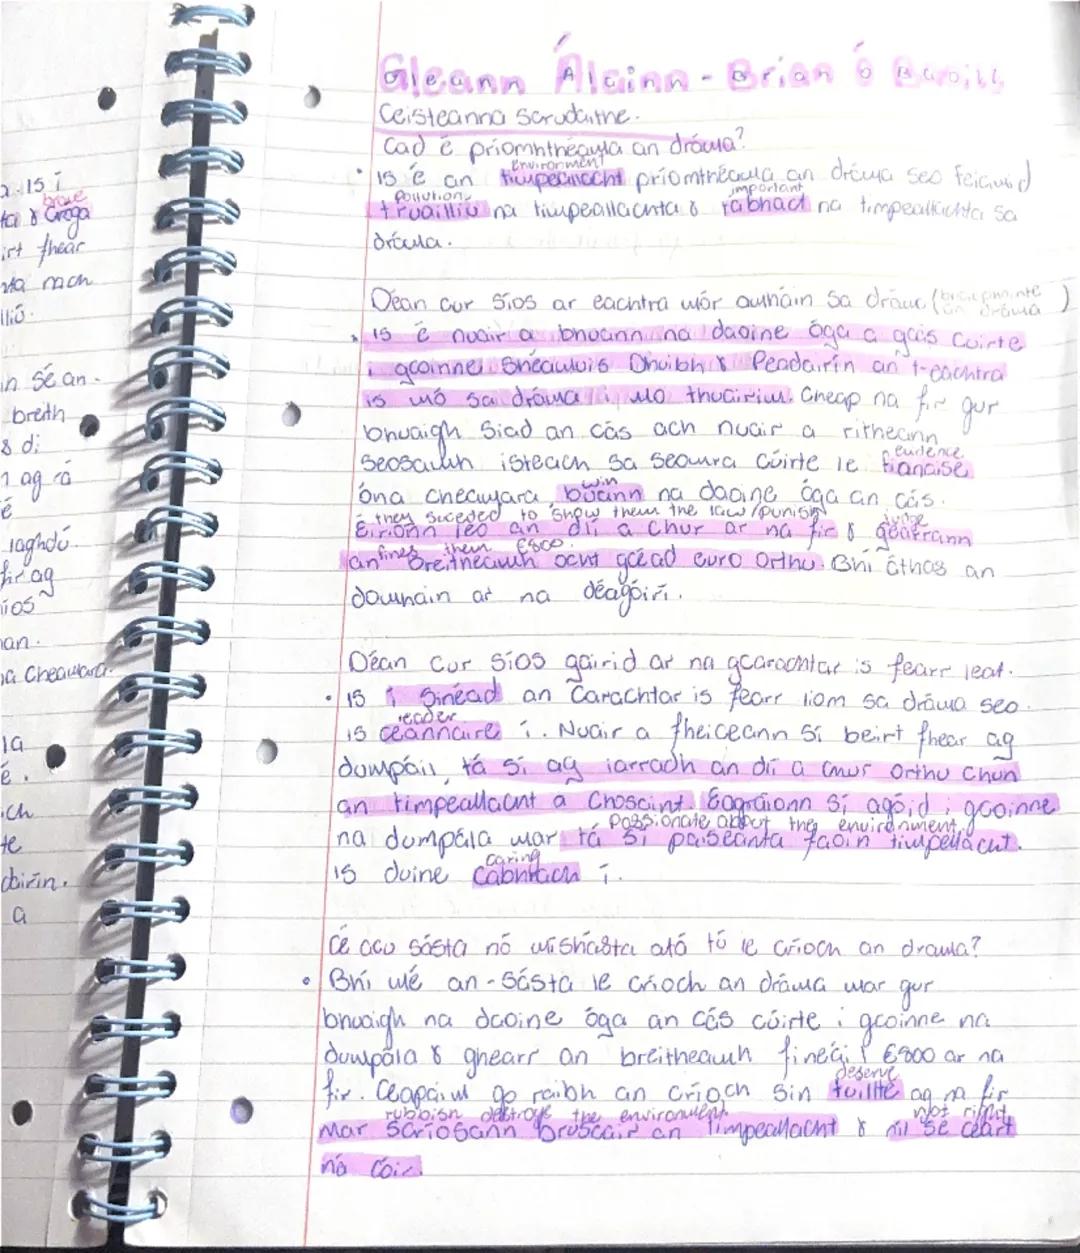 Gleann Álainn - Brian Ó Baoill
Ceisteanna Scrúdaithe.
Cad é príomhthéama an dráma?
environment
• is é an timpeallacht príomthéama an dráma seo feicimid
Pollution important
truailliú na timpeallachta & tábhact na timpeallachta sa
dráma.
Déan cur síos ar eachtra mór amháin sa dráma (buaicphointe an dráma)
• is é nuair a bhuann na daoine óga a gcás cúirte
i gcoinne Shéamuis Dhuibh & Peadairín an t-eachtra
is mó sa dráma i mo thuairim. Cheap na fir gur
bhuaigh siad an cás ach nuair a ritheann
evidence
Seosaimh isteach sa seomra cúirte le fianaise
win
óna cheamara buann na daoine óga an cás.
& they suceeded to show them the law/punish judge
Éiríonn leo an dlí a chur ar na fir & gearrann
fines them €800.
an Breitheamh ocht gcéad euro orthu. Bhí áthas an
domhain ar na déagóirí.
Déan cur síos gairid ar na gcarachtar is fearr leat.
• is í Sinéad an carachtar is fearr liom sa dráma seo.
leader
is ceannaire í. Nuair a fheiceann sí beirt fhear ag
dumpáil, tá sí ag iarradh an dlí a chur orthu chun
an timpeallacht a chosaint. Eagraíonn sí agóid i gcoinne
passionate about the environment.
na dumpála mar tá sí paiseanta faoin timpeallacht.
caring
is duine cabhrach í.
Cé acu sásta nó míshásta atá tú le críoch an drama?
• Bhí mé an-sásta le críoch an dráma mar gur
bhuaigh na daoine óga an cás cúirte i gcoinne na
dumpála & ghearr an breitheamh fineáil €800 ar na
deserve
fir. Ceapaim go raibh an críoch sin tuillte ag na fir
rubbish destroys the environment not right
mar scriosann bruscair an timpeallacht & níl sé ceart
ná cóir.
a is í
brave
ta & Croga
irt fhear
nta nach
lliú.
in sé an.
breith
& dí
n ag rá
é
laghdú.
fir ag
íos
an.
na Cheamara.
la
é.
ich
te
dairín.
a